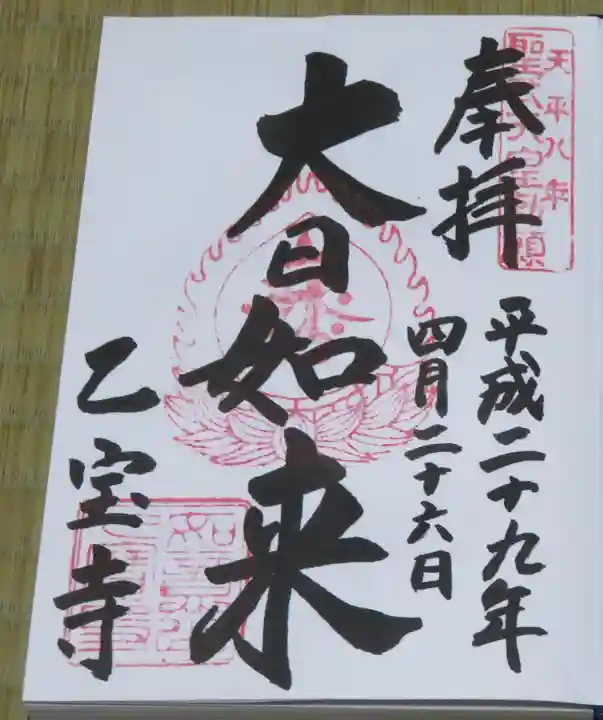 天平八年
聖武天皇勅願
奉拝
平成二十九年
四月二十六日
大日如来
乙宝寺